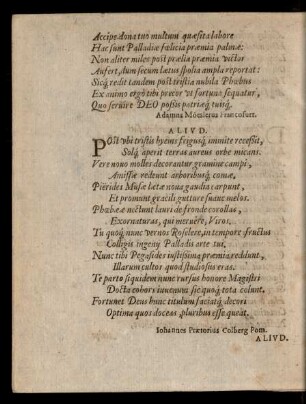 Accipe dona tuo multum quæsita labore
Hæc sunt Palladiæ fœlicia præmia palmæ:
Non aliter miles post prælia præmia victor
Aufert, dum secum lætus spolia ampla reportat:
Sicq́; redit tandem post tristia nubila Phœbus
Ex animo ergò tibi precor vt fortuna sequatur,
Quo servire DEO poßis patriæq́; tuisq́;.
ALIVD.
POst vbi tristis hyems frigusq́; immite recessit,
Solq́; aperit terras aureus orbe micans.
Vere nouo molles decorantur gramine campi,
Amissæ redeunt arboribusq́; comæ,
Pierides Musæ lætæ noua gaudia carpunt,
Et promunt gracili gutture suaue melos.
Phœbeæ nectunt lauri de fronde corollas,
Exornaturas, qui meruêre, Viros.
Tu quoq́; nunc vernos Roselere, in tempore fructus
Colligis ingenij Palladis arte tui,
Nunc tibi Pegasides iustißima præmia reddunt,
Illarum cultor quod studiosus eras.
Te parto siquidem nunc rursus honore Magistri
Docta cohors iuvenum sic quoq́; tota colunt.
Fortunet Deus hunc titulum faciatq́; decori
Optima quos doceas pluribus esse queat.
Iohannes Prætorius Colberg Pom.
ALIVD.